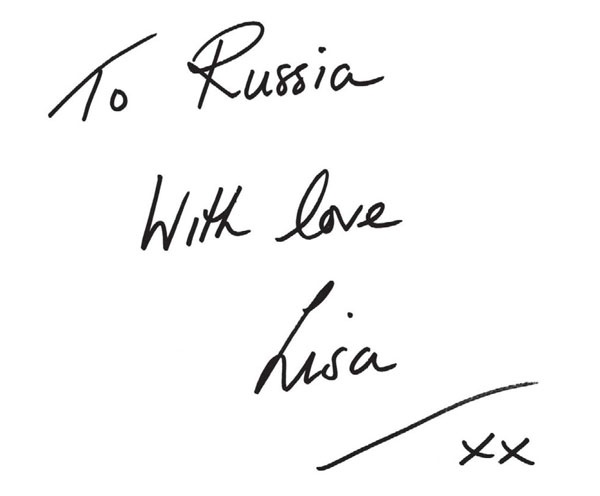 To Russia
With love
Lisa
xx